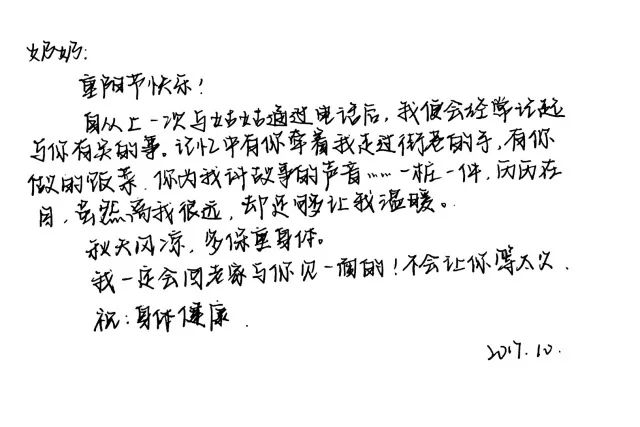 奶奶:
重阳节快乐!
自从上一次与姑姑通过电话后,我便会经常记起
与你有关的事。记忆中有你牵着我走过街巷的手,有你
做的饭菜,你为我讲故事的声音……一桩一件,历历在
目,虽然离我很远,却足够让我温暖。
秋天风凉,多保重身体。
我一定会回老家与你见一面的!不会让你等太久.
祝:身体健康.
2017.10.